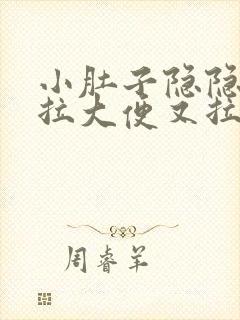 小肚子隐隐
拉大便又拉
周睿羊